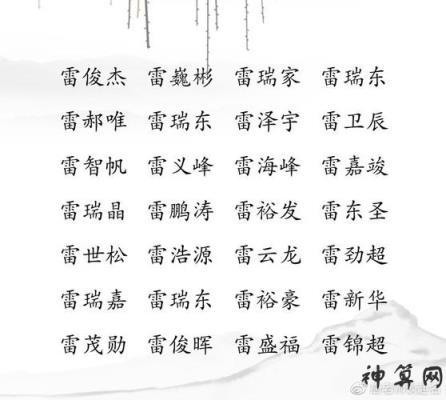 雷俊杰 雷巍彬 雷瑞家 雷瑞东
雷郝唯 雷瑞东 雷泽宇 雷卫辰
雷智帆 雷义峰 雷海峰 雷嘉竣
雷瑞晶 雷鹏涛 雷裕发 雷东圣
雷世松 雷浩源 雷云龙 雷劲超
雷瑞嘉 雷瑞东 雷裕豪 雷新华
雷茂勋 雷俊晖 雷盛福 雷锦超
神算网